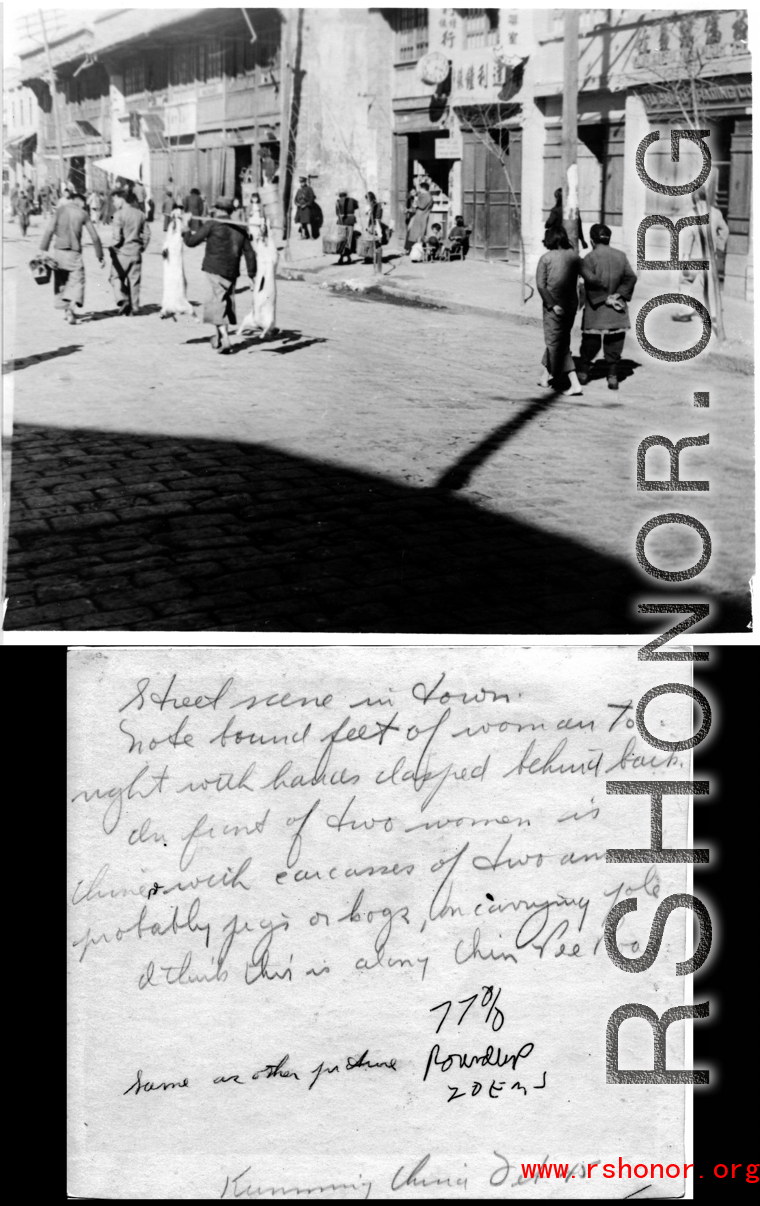 利達
RSHONOR.ORG
Street scene in town.
Note bound feet of woman to
right with hands clasped behind back.
In front of two women is
Chinese with carcasses of two an
probably pigs or hogs, on carrying pole
I think this is along Chin Pee Roa
77%
Same as other picture Roundup
20 Ems
Kunming China Feb 45
www.rshonor.org